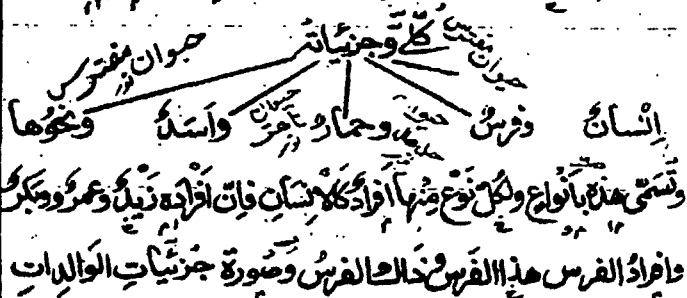 كلّيّ وجزئياته
حيوان مفترس
إنْسانٌ وفرسٌ وحمارٌ وأسَدٌ ونحوُها
وتُسَمّى هذه بأنواع ولكلّ نَوْع مِنْها أفرادٌ كالإنسان فإنّ أفراده زَيْدٌ وعمرٌو وبكرٌ
وافرادُ الفرس هذا الفَرسُ وذاك الفرسُ وصُورة جُزئيّاتِ الوَالداتِ